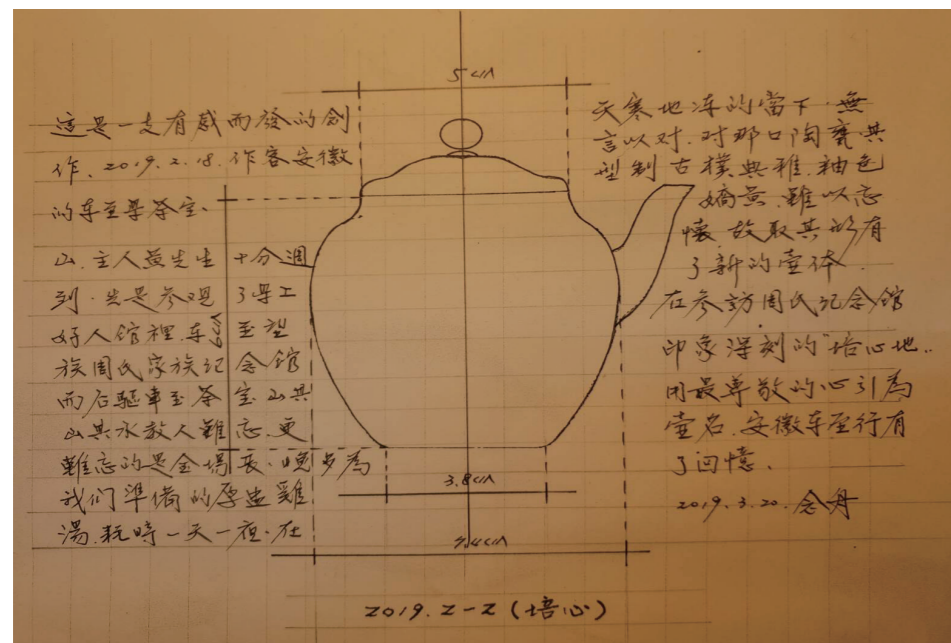 5cm
這是一支有感而發的創
作、2019.2.18.作客安徽
的东至县茶室、
山.主人黄先生十分週
到.先是参观了县工
好人馆裡.东至望
族周氏家族记念馆
而后驅車至茶室.山共
山共水教人難忘.更
難忘的是金場長.晚步為
我们準備的原盅雞
湯.耗時一天一夜.在
天寒地冻的當下.無
言以对.对那口陶甕.其
型制古樸典雅.釉色
嬌黄.難以忘
懷.故取其形有
了新的壶体.
在参訪周氏纪念館
印象深刻的培心地..
用最尊敬的心引為
壶名.安徽东至行有
了回憶.
2019.3.20.念丹
3.8cm
2019.2-2(培心)